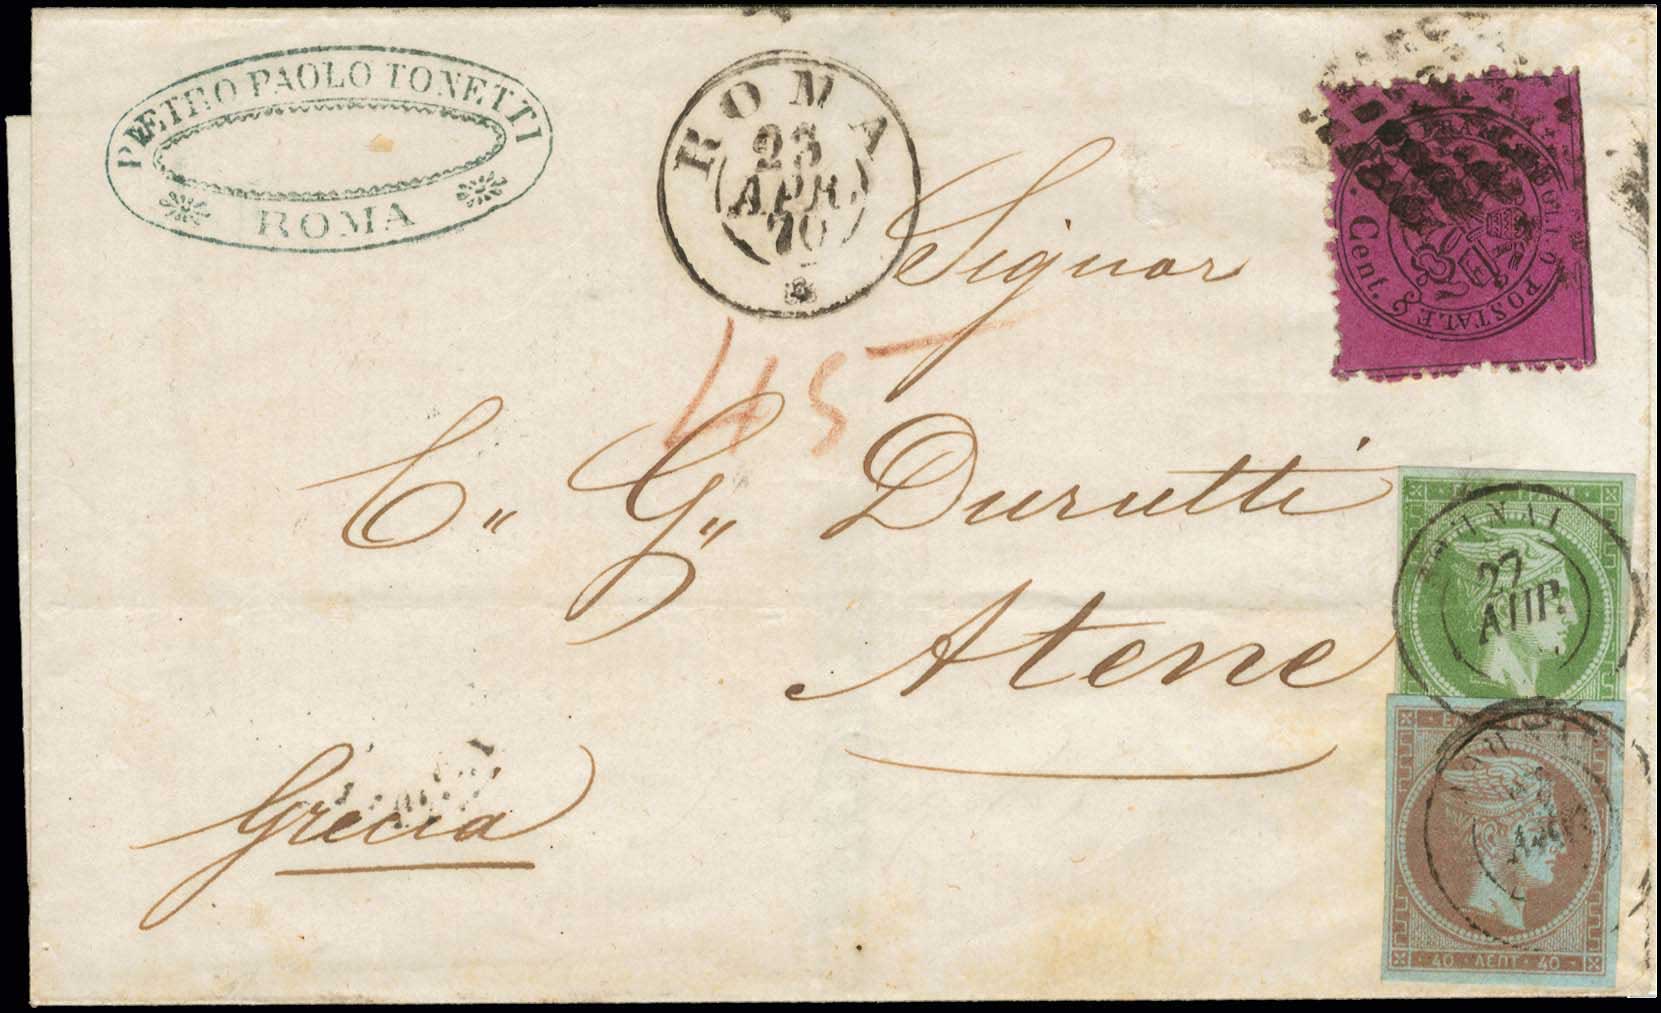 PIETRO PAOLO TONETTI
ROMA
ROMA
23
APR.
70
Cent.
POSTALE
Signor
45
C" G" Durutti
Atene
Grecia
27
ΑΠΡ.
40 ΛΕΠΤ 40